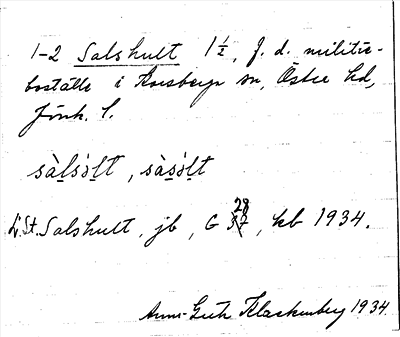 1-2 Salshult 1½, f. d. militie-
boställe i Korsberga sn, Östra hd,
Jönk. l.
sàlsòlt, sàsòlt
L:St. Salshult, jb, G 57 28, kb 1934.
Anna-Greta Klackenberg 1934